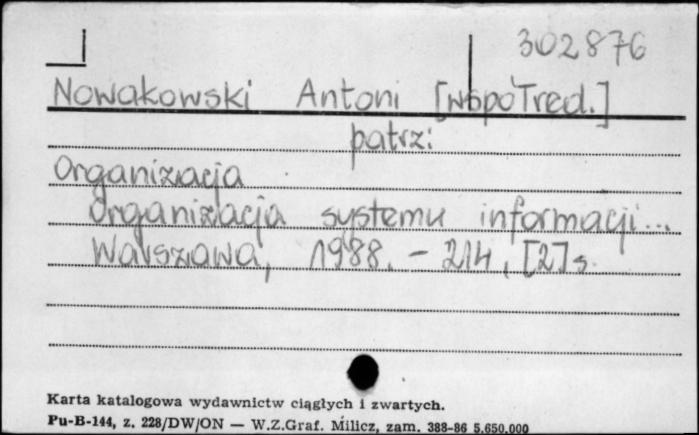 302876
Nowakowski Antoni [współred.]
patrz:
Organizacja
Organizacja systemu informacji...
Warszawa, 1988. - 214, [2] s.
Karta katalogowa wydawnictw ciągłych i zwartych.
Pu-B-144, z. 228/DW/ON — W.Z.Graf. Milicz, zam. 388-86 5.650.000